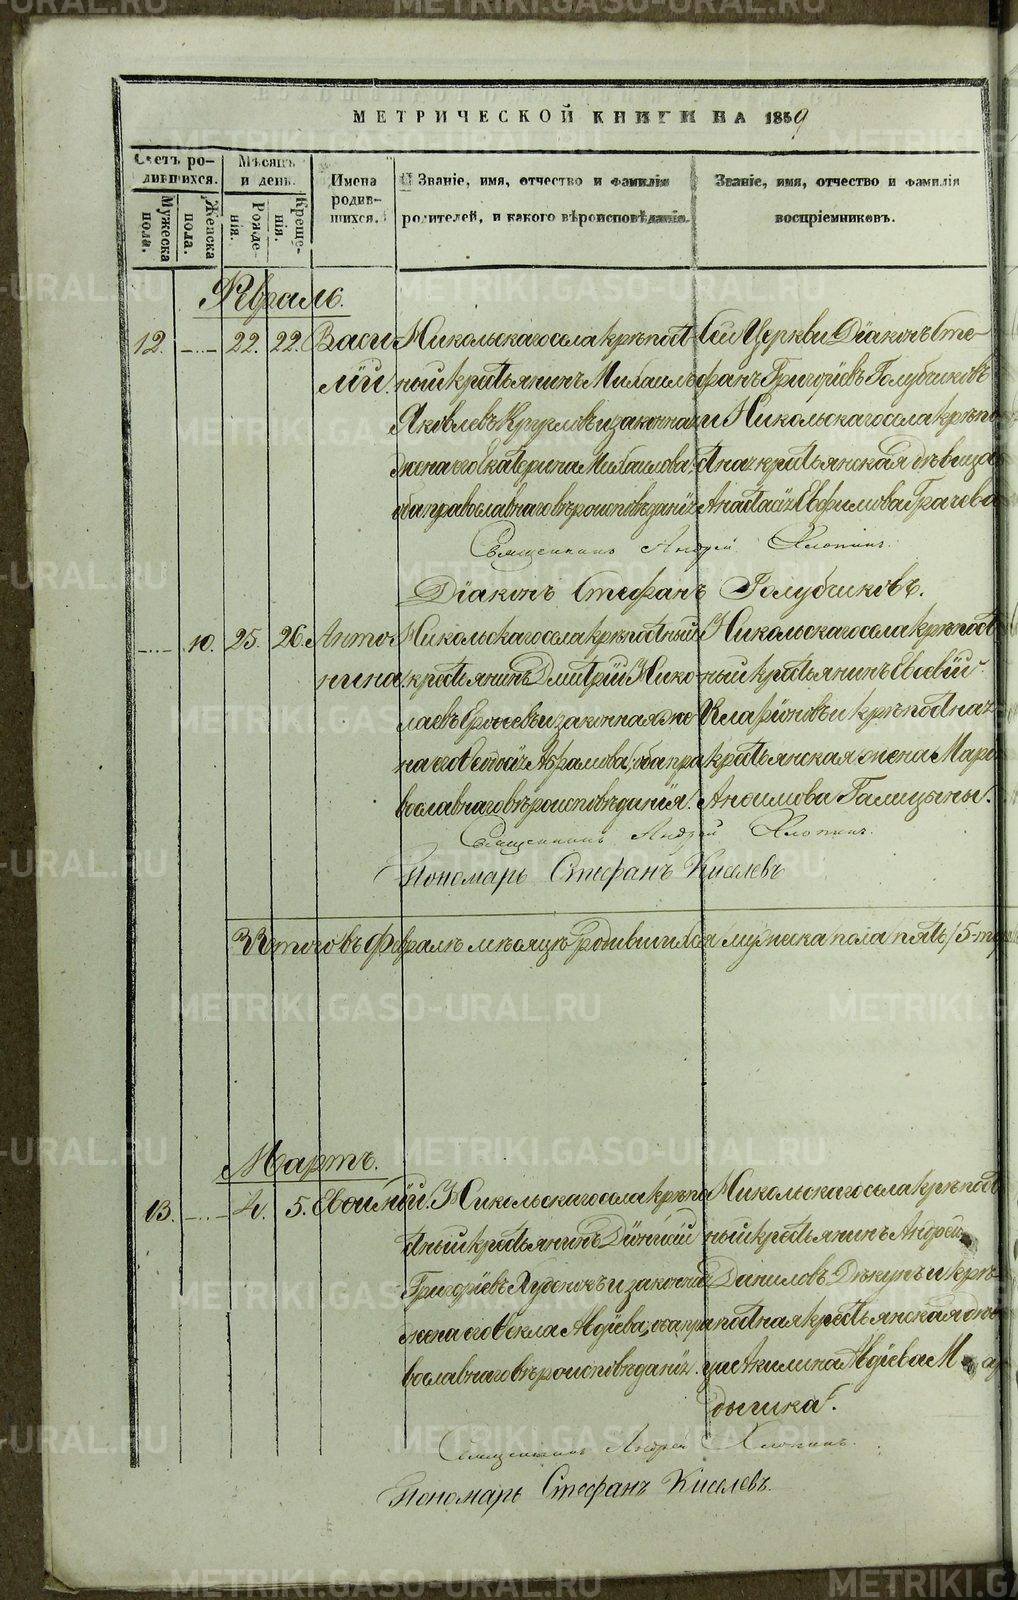 МЕТРИЧЕСКОЙ КНИГИ НА 1859
Счетъ ро-
дившихся.
Мужеска пола.
Женска пола.
Мѣсяцъ
и день.
Рожде-
нія.
Креще-
нія.
Имена
родив-
шихся.
Званіе, имя, отчество и фамилія
родителей, и какого вѣроисповѣданія.
Званіе, имя, отчество и фамилія
воспріемниковъ.
Февраль.
12. 22. 22. Васи-
лій.
Никольскаго села крѣпост-
ный крестьянинъ Михаилъ
Яковлевъ Кругловъ и законная
жена его Екатерина Михаилова,
оба православнаго вѣроисповѣданія.
сей Церкви Діаконъ Сте-
фанъ Григоріевъ Голубчиковъ
и Никольскаго села крѣпо-
стная крестьянская дѣвица
Анастасія Евфимова Грачева
Священникъ Андрей Хлопинъ.
Діаконъ Стефанъ Голубчиковъ.
10. 25. 26. Анто-
нина.
Никольскаго села крѣпостный
крестьянинъ Дмитрій Нико-
лаевъ и законная же-
на его Абрамова, оба пра-
вославнаго вѣроисповѣданія.
Никольскаго села крѣпост-
ный крестьянинъ Евсевій
Иларіоновъ и крѣпостная
крестьянская жена Марѳа
Анисимова Галицыны.
Священникъ Андрей Хлопинъ.
Пономарь Стефанъ Киселевъ
Итого въ Февралѣ мѣсяцѣ родившихся мужеска пола пять /5-ть
Мартъ.
13. 4. 5. Евѳимій.
Никольскаго села крѣпо-
стный крестьянинъ Діонисій
Григоріевъ Худенокъ и законная
жена его Ѳекла Авдіева, оба пра-
вославнаго вѣроисповѣданія.
Никольскаго села крѣпост-
ный крестьянинъ Андрей
Даниловъ Дѣкунъ и крѣ-
постная крестьянская дѣви-
ца Акилина Авдіева
Священникъ Андрей Хлопинъ.
Пономарь Стефанъ Киселевъ.
METRIKI.GASO-URAL.RU